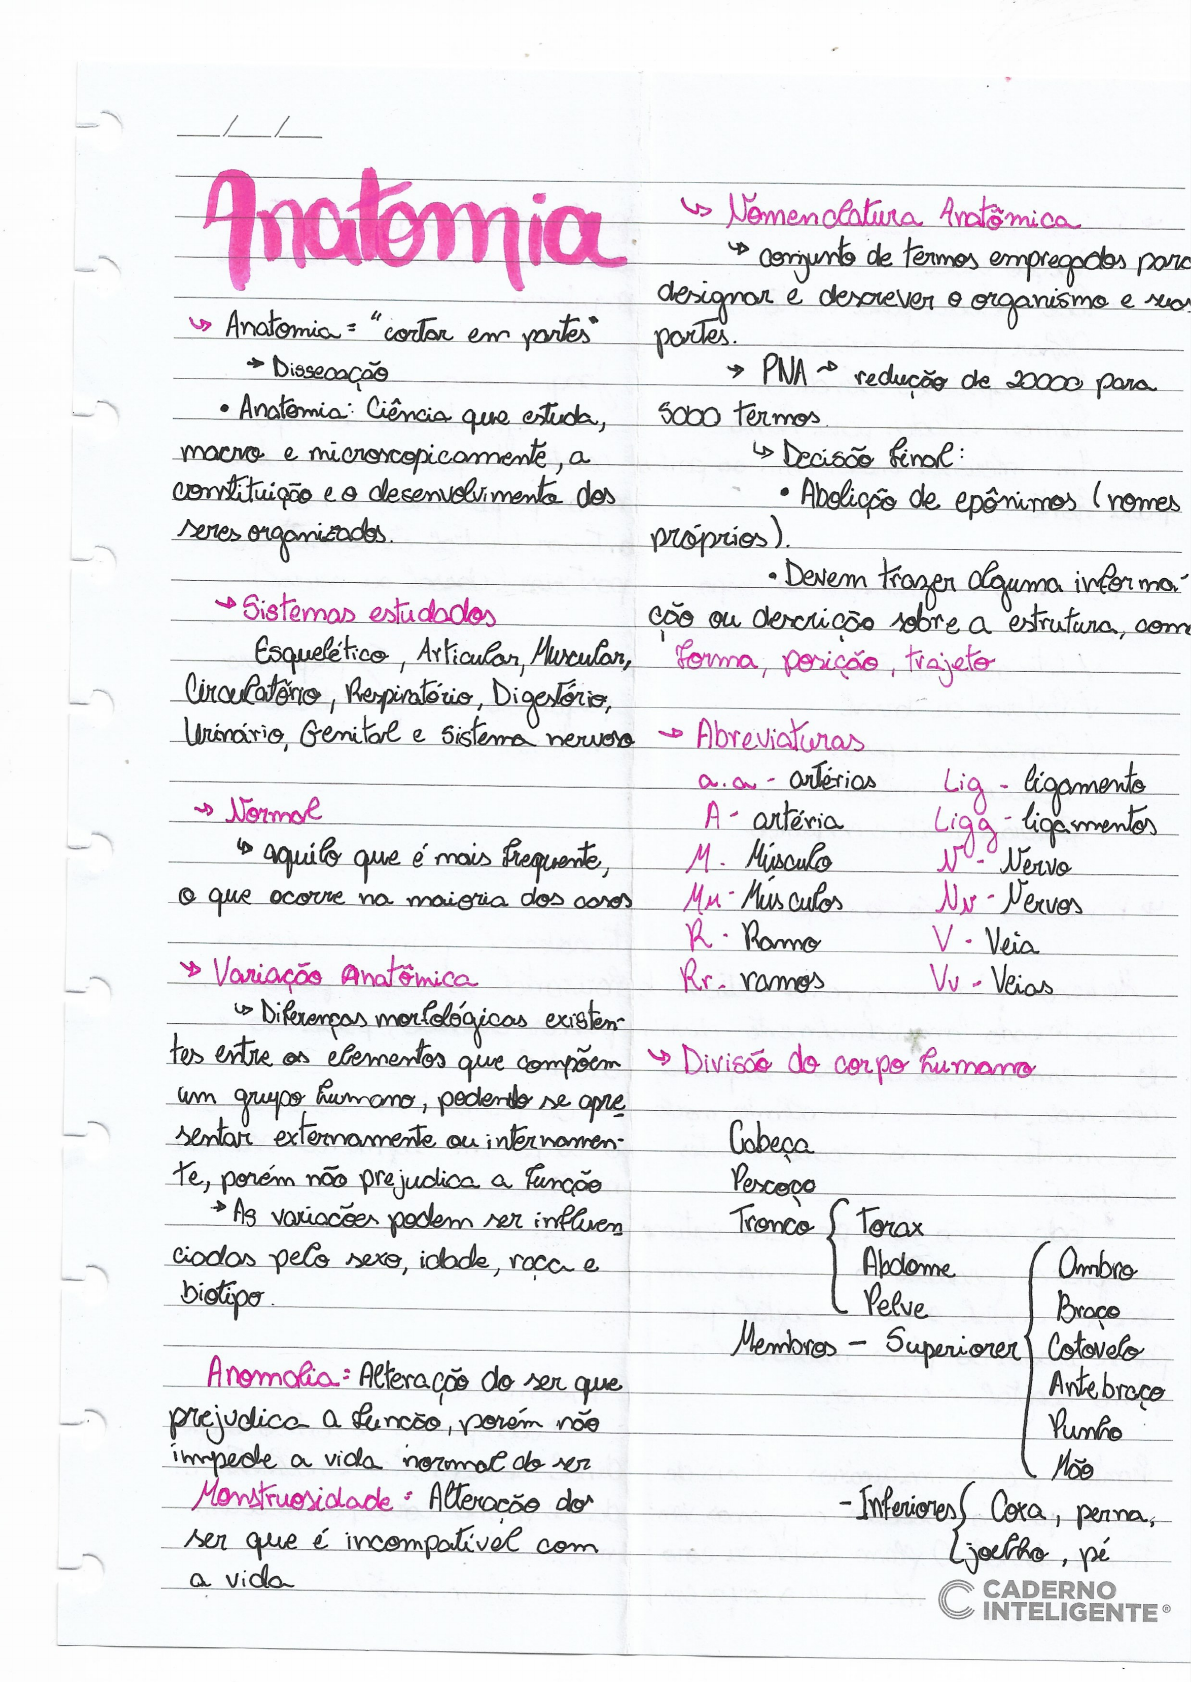 Anatomia
↳ Anatomia = "cortar em partes"
→ Dissecação
• Anatomia: Ciência que estuda,
macro e microscopicamente, a
constituição e o desenvolvimento dos
seres organizados.
→ Sistemas estudados
Esquelético, Articular, Muscular,
Circulatório, Respiratório, Digestório,
Urinário, Genital e sistema nervoso
→ Normal
↳ aquilo que é mais frequente,
o que ocorre na maioria dos casos
→ Variação Anatômica
↳ Diferenças morfológicas existen-
tes entre os elementos que compõem
um grupo humano, podendo se apre
sentar externamente ou internamen-
te, porém não prejudica a função
→ As variacões podem ser influen
ciadas pelo sexo, idade, raça e
biotipo.
Anomalia: Alteração do ser que
prejudica a funcão, porém não
impede a vida normal do ser
Monstruosidade: Alteração do
ser que é incompatível com
a vida
↳ Nomenclatura Anatômica
↳ conjunto de termos empregados para
designar e descrever o organismo e suas
partes.
→ PNA → redução de 20000 para
5000 termos.
↳ Decisão final:
• Abolição de epônimos (nomes
próprios).
• Devem trazer alguma informa-
ção ou descrição sobre a estrutura, como
forma, posição, trajeto
→ Abreviaturas
a.a - artérias Lig - ligamento
A - artéria Ligg - ligamentos
M. Músculo N - Nervo
Mm - Músculos Nn - Nervos
R - Ramo V - Veia
Rr. ramos Vv - Veias
↳ Divisão do corpo humano
Cabeça
Pescoço
Tronco { Torax
Abdome
Pelve
Membros - Superiores { Ombro
Braço
Cotovelo
Antebraço
Punho
Mão
- Inferiores { Coxa, perna,
joelho, pé
CADERNO
INTELIGENTE®